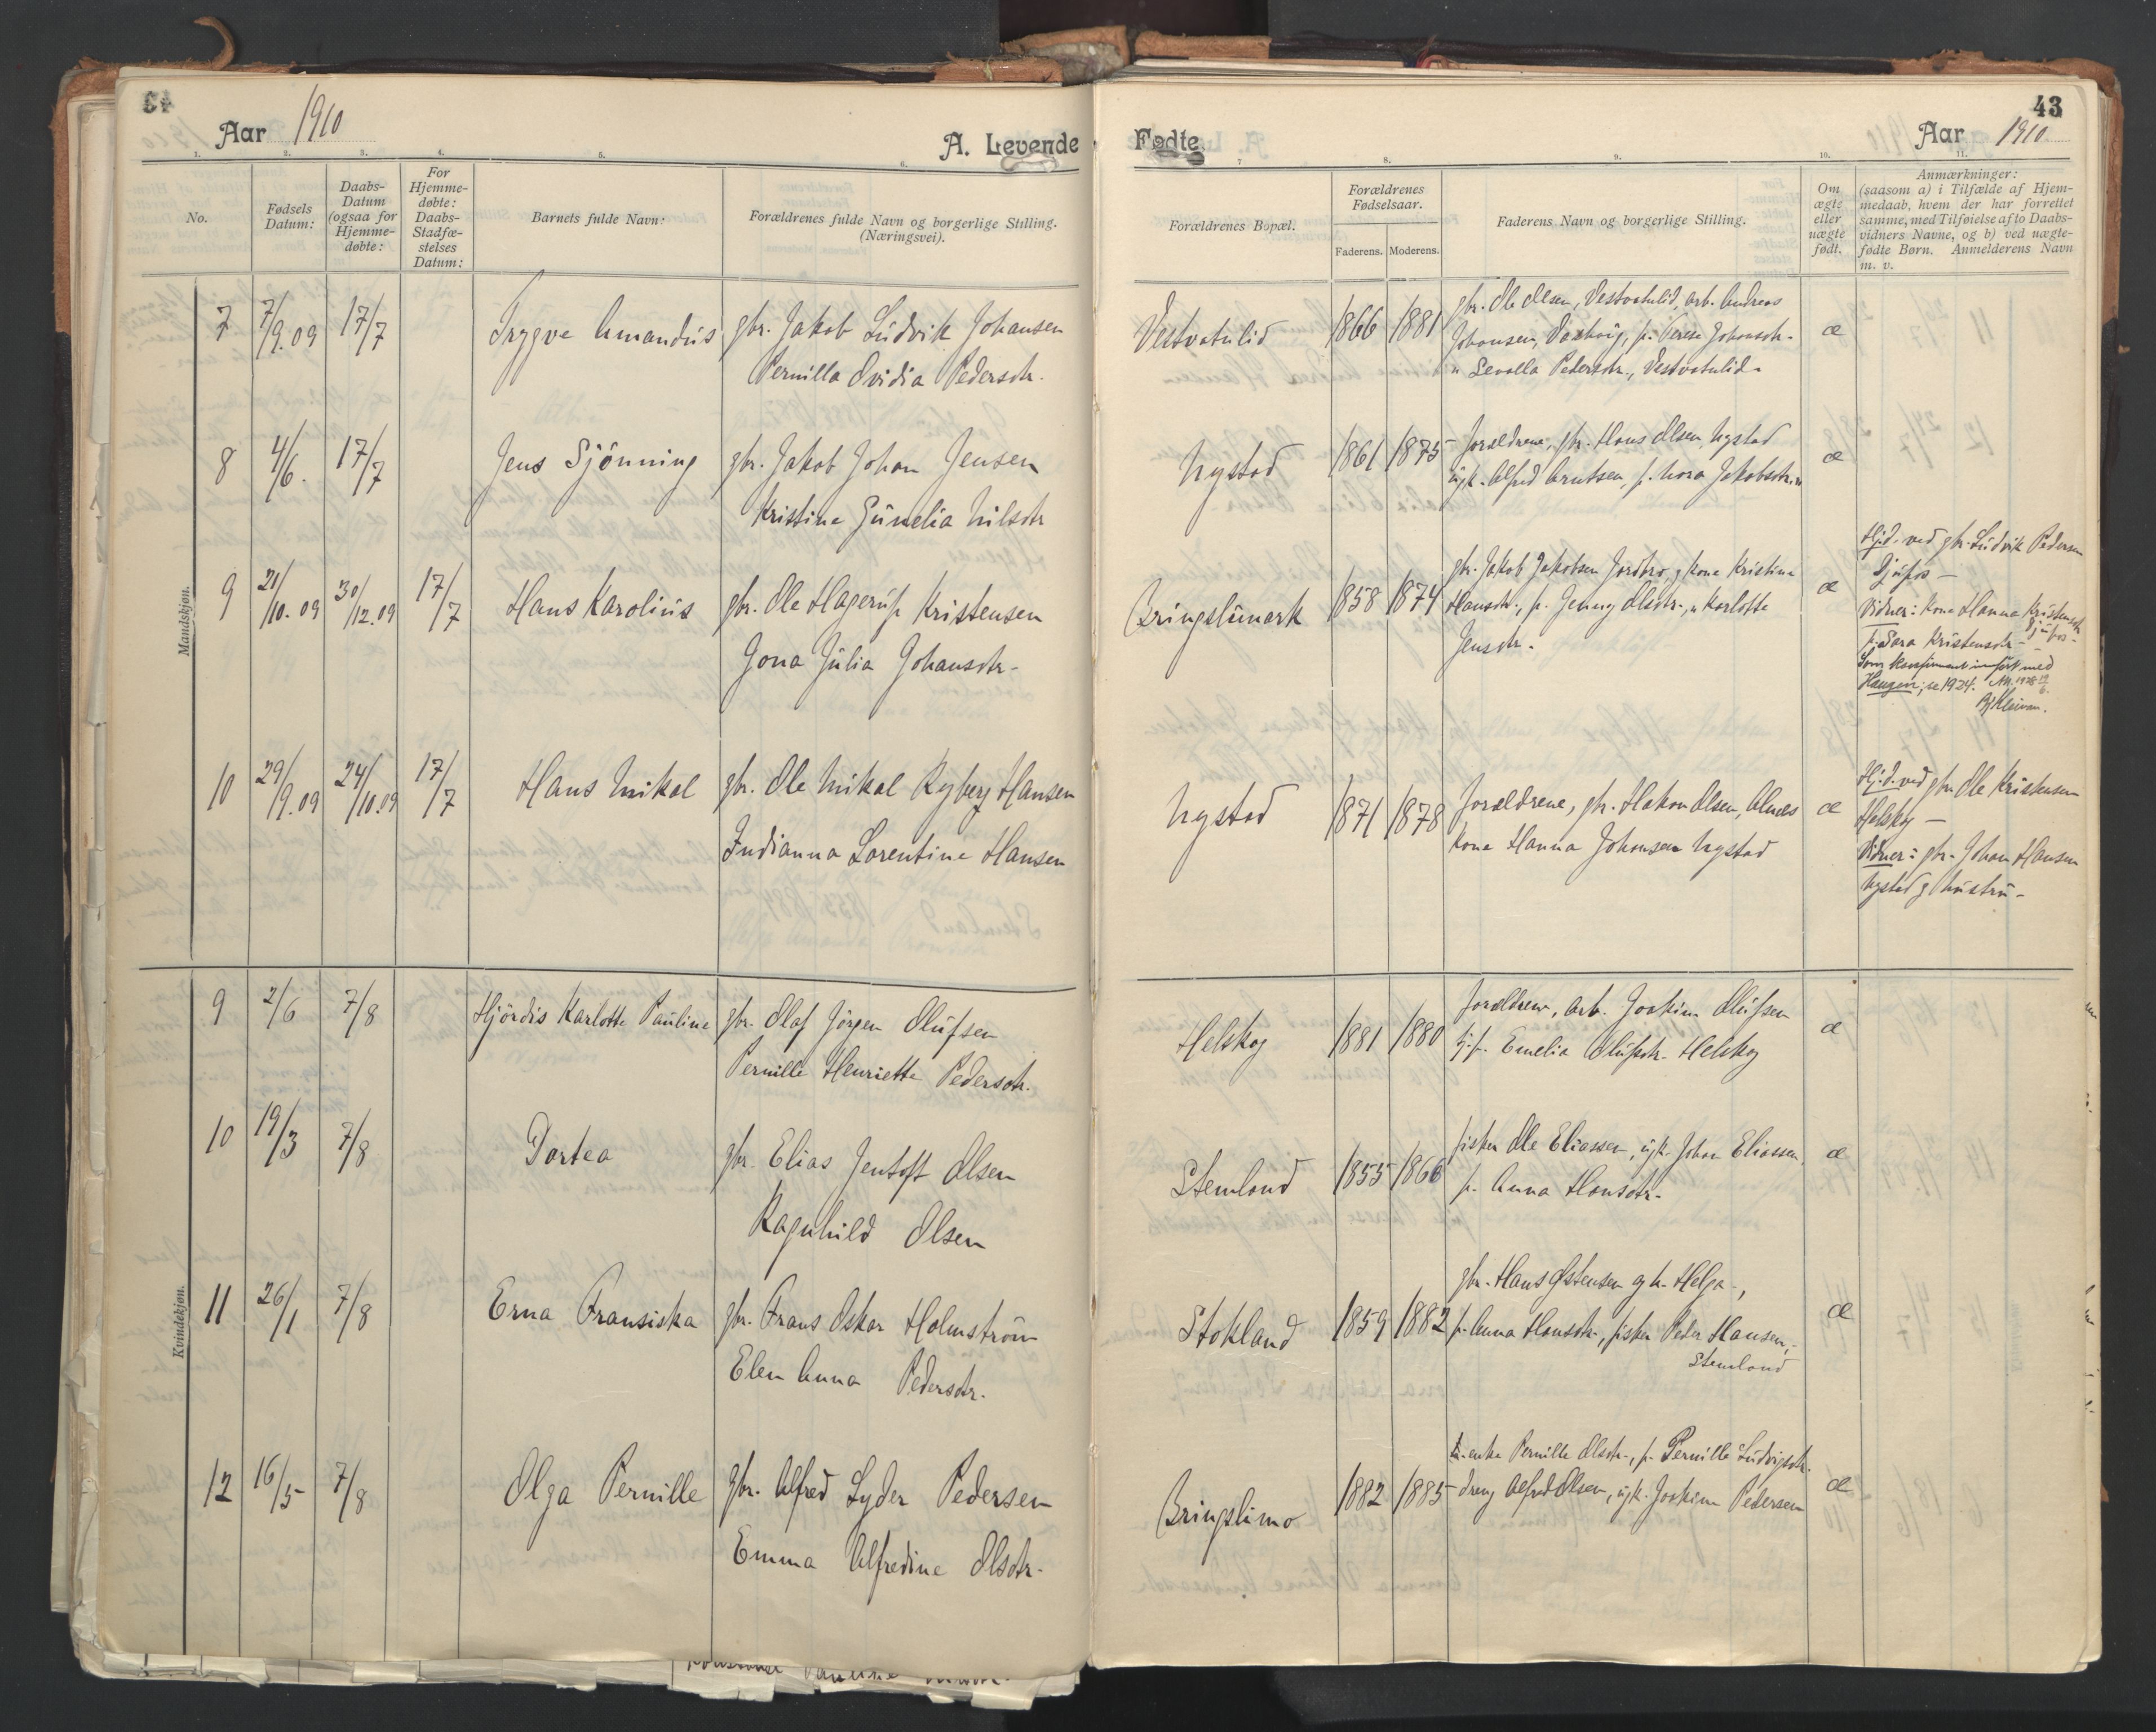 43
Aar 1910
A. Levende
1. 2. 3. 4. 5. 6.
No.
Fødsels
Datum:
Daabs-
Datum
(ogsaa for
Hjemme-
døbte:
For
Hjemme-
døbte:
Daabs-
Stadfæ-
stelses
Datum:
Barnets fulde Navn:
Forældrenes fulde Navn og borgerlige Stilling.
(Næringsvei).
Mandskjøn.
7 7/9.09 17/7 Trygve Amandus gbr. Jakob Ludvik Johansen
Pernilla Ovidia Pedersdtr.
8 4/6. 17/7 Jens Sjönning gbr. Jakob Johan Jensen
Kristine Gunelia Nilsdtr
9 21/10.09 30/12.09 17/7 Hans Karolius gbr. Ole Hagerup Kristensen
Jona Julia Johansdtr.
10 29/9.09 24/10.09 17/7 Hans Mikal gbr. Ole Mikal Ryberg Hansen
Indianna Lorentine Hansen
Kvindekjøn.
9 2/6 7/8 Hjördis Karlotte Pauline gbr. Olaf Jörgen Olufsen
Pernille Henriette Pedersdtr.
10 19/3 7/8 Dortea gbr. Elias Jentoft Olsen
Ragnhild Olsen
11 26/1 7/8 Erna Fransiska gbr. Frans Oskar Holmström
Elen Anna Pedersdtr.
12 16/5 7/8 Olga Pernille gbr. Alfred Lyder Pedersen
Emma Alfredine Olsdtr.
43
Fødte.
Aar 1910
7 8. 9. 10. 11.
Forældrenes Bopæl.
Forældrenes
Fødselsaar.
Faderens. Moderens.
Faderens Navn og borgerlige Stilling.
Om
ægte
eller
uægte
født.
Anmærkninger:
(saasom a) i Tilfælde af Hjem-
medaab, hvem der har forrettet
samme, med Tilføielse af to Daabs-
vidners Navne, og b) ved uægte-
fødte Børn. Anmelderens Navn
m. v.
Vestvatulid 1866 1881 gbr. Ole Olsen, Vestvatulid, arb. Andreas
Johansen, p. Terese Johansdtr.
" Sevolla Pedersdtr., Vestvatulid. æ
Nystad 1861 1875 Forældrene, gbr. Hans Olsen Nystad
ugk. Alfred Arntsen, p. Nora Jakobsdtr. " æ
Bringslimark 1858 1874 gbr. Jakob Jakobsen Jordbro, g kone Kristine
Hansdtr., p. Jenny Olsdtr., " Karlotte
Jensdtr. æ
Hj.d. ved gbr. Ludvik Pedersen
Djupos –
Vidner: Kone Hanna Kristensdtr
Djupos –
p. Sara Kristensdtr –
Som konfirmant innført med
Haugen; se 1924. 1928 19/6.
Nystad 1871 1878 Forældrene, gbr. Hakon Olsen, Alnes
kone Hanna Johansen Nystad æ
Hj.d. ved gbr. Ole Kristensen
Helskog –
Vidner: gbr. Johan Hansen
Nystad g hustru –
Helskog 1881 1880 Forældrene, arb. Joakim Olufsen
p. Emelia Olufsdtr. Helskog æ
Stemland 1855 1866 fisker Ole Eliassen, ugk. Johan Eliassen,
p. Anna Hansdtr. æ
Stokland 1859 1882 gbr. Hans Østensen g h. Helga –,
p. Anna Hansdtr., fisker Peder Hansen,
Stemland æ
Bringslimo 1882 1885 enke Pernille Olsdtr., p. Pernille Ludvigsdtr.
dreng Alfred Olsen, ugk. Joakim Pedersen æ